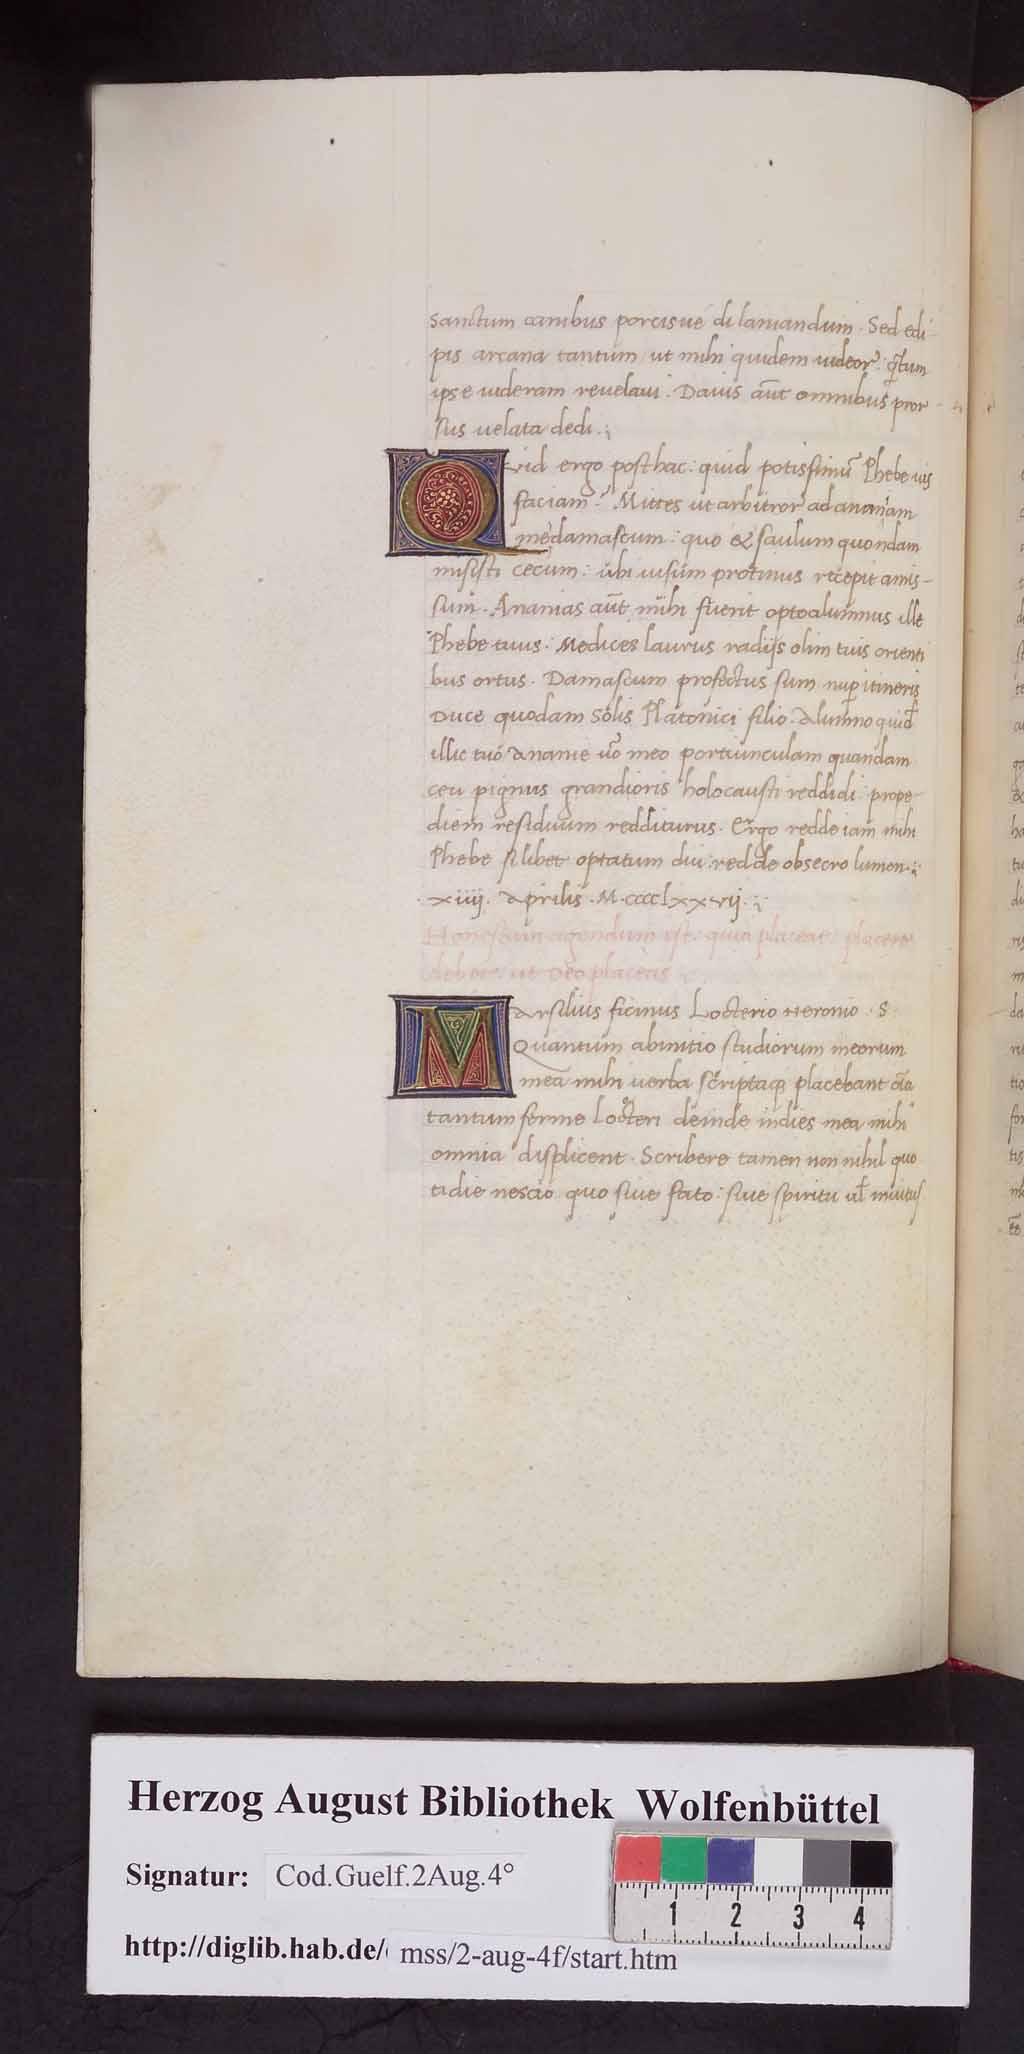 sanctum canibus porcisue dilaniandum. Sed edi
pis arcana tantum ut mihi quidem uideor: q̄tum
ipse uideram reuelaui. Dauis aūt omnibus pror
sus uelata dedi.
Quid ergo posthac: quid potissimū Phebe uis
faciam? Mittes ut arbitror ad ananiam
me damascum: quo & saulum quondam
misisti cecum: ubi uisum protinus recepit amis-
sum. Ananias aūt mihi fuerit opto alumnus ille
Phebe tuus: Medices laurus radijs olim tuis orienti
bus ortus. Damascum profectus sum nup itineris
Duce quodam Solis Platonici filio. Alumno quid
illic tuo Ananie uō meo portiunculam quandam
ceu pignus grandioris holocausti reddidi: prope
diem residuum redditurus. Ergo redde iam mihi
Phebe si libet optatum diu: redde obsecro lumen.
xiiij. Aprilis. M.cccclxxvij.
Honestum agendum est: quia placeat: placere
debet: ut Deo placeas
Marsilius ficinus Locterio neronio. S.
Quantum abinitio studiorum meorum
mea mihi uerba scriptaq; placebant oīa
tantum ferme Locteri deinde indies mea mihi
omnia displicent. Scribere tamen non nihil quo
tidie nescio quo siue fato: siue spiritu ul̄ inuitus
Herzog August Bibliothek Wolfenbüttel
Signatur: Cod.Guelf.2Aug.4°
1 2 3 4
http://diglib.hab.de/ mss/2-aug-4f/start.htm